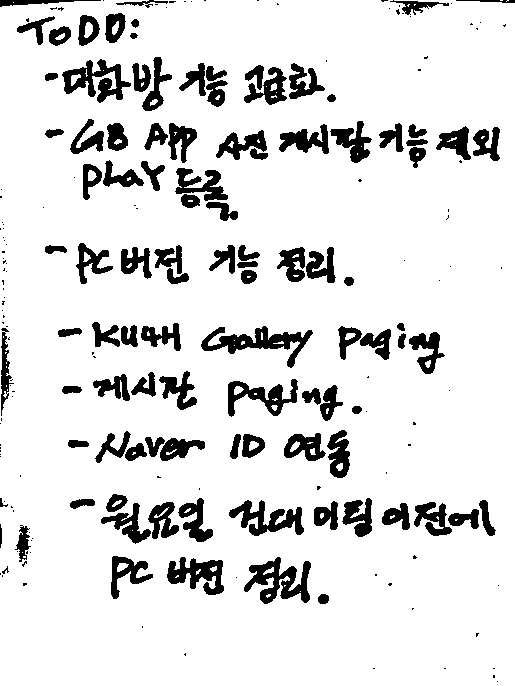 TODO:
- 대화방 기능 고급화.
- GB App A전 게시판 기능 제외
PLAY 등록.
- PC 버전 기능 정리.
- KU4H Gallery Paging
- 게시판 Paging.
- Naver ID 연동
- 월요일 건대 미팅 이전에
PC 버전 정리.